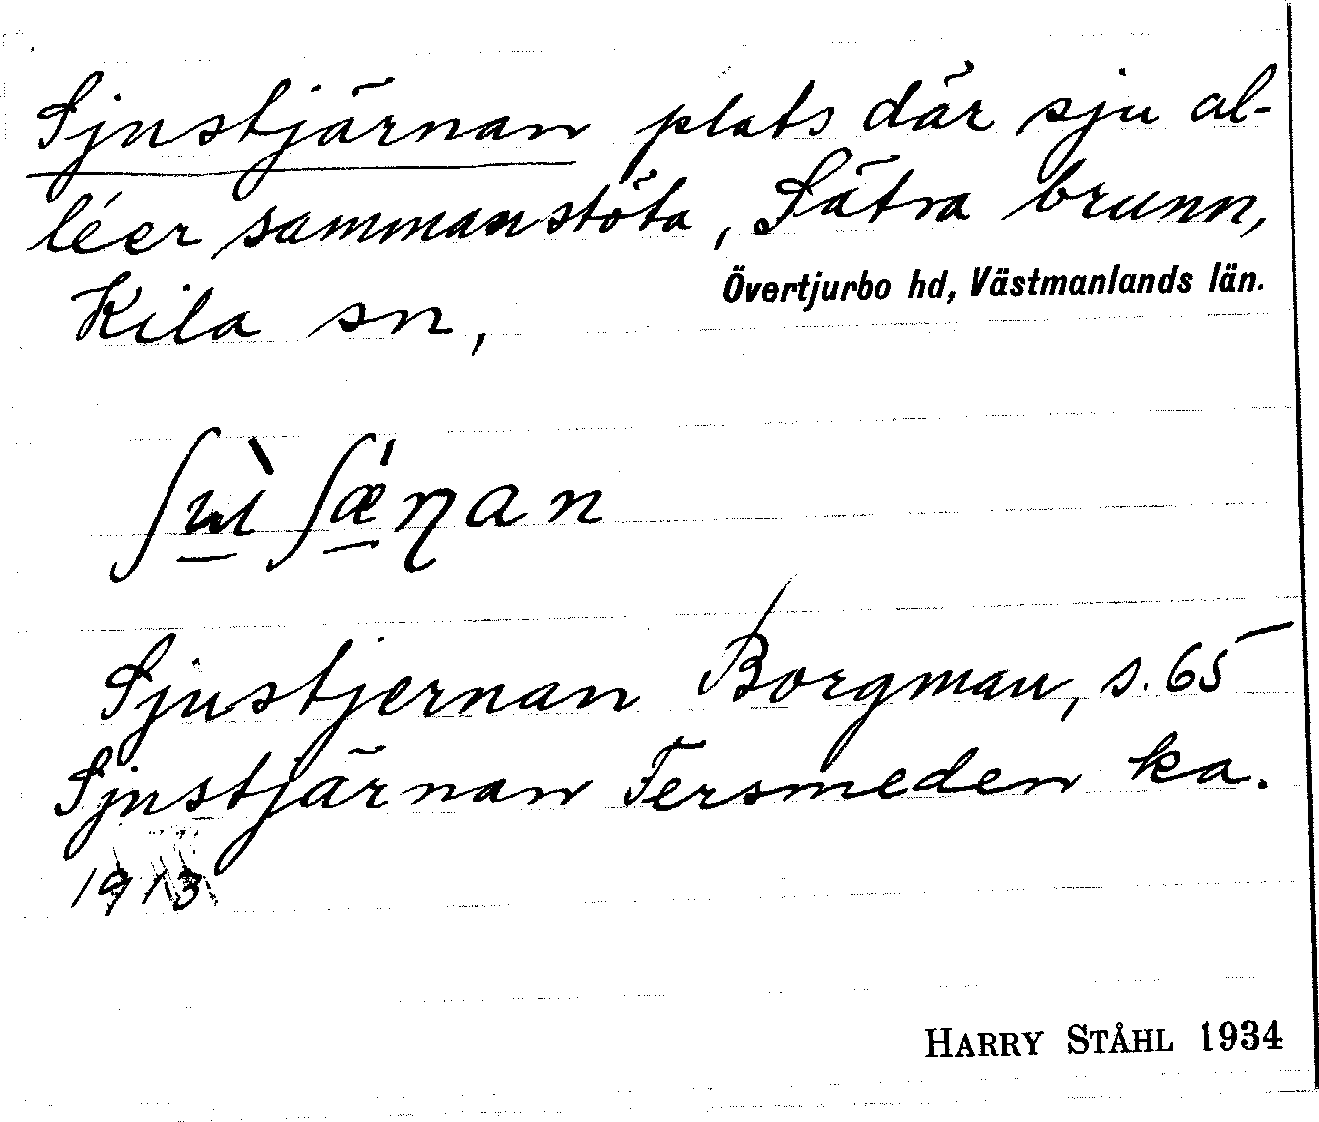 Sjustjärnan plats där sju al-
léer sammanstöta, Sätra brunn,
Kila sn, Övertjurbo hd, Västmanlands län.
Sjustjernan Borgman, s. 65
Sjustjärnan Fersmeden ka.
1913
HARRY STÅHL 1934